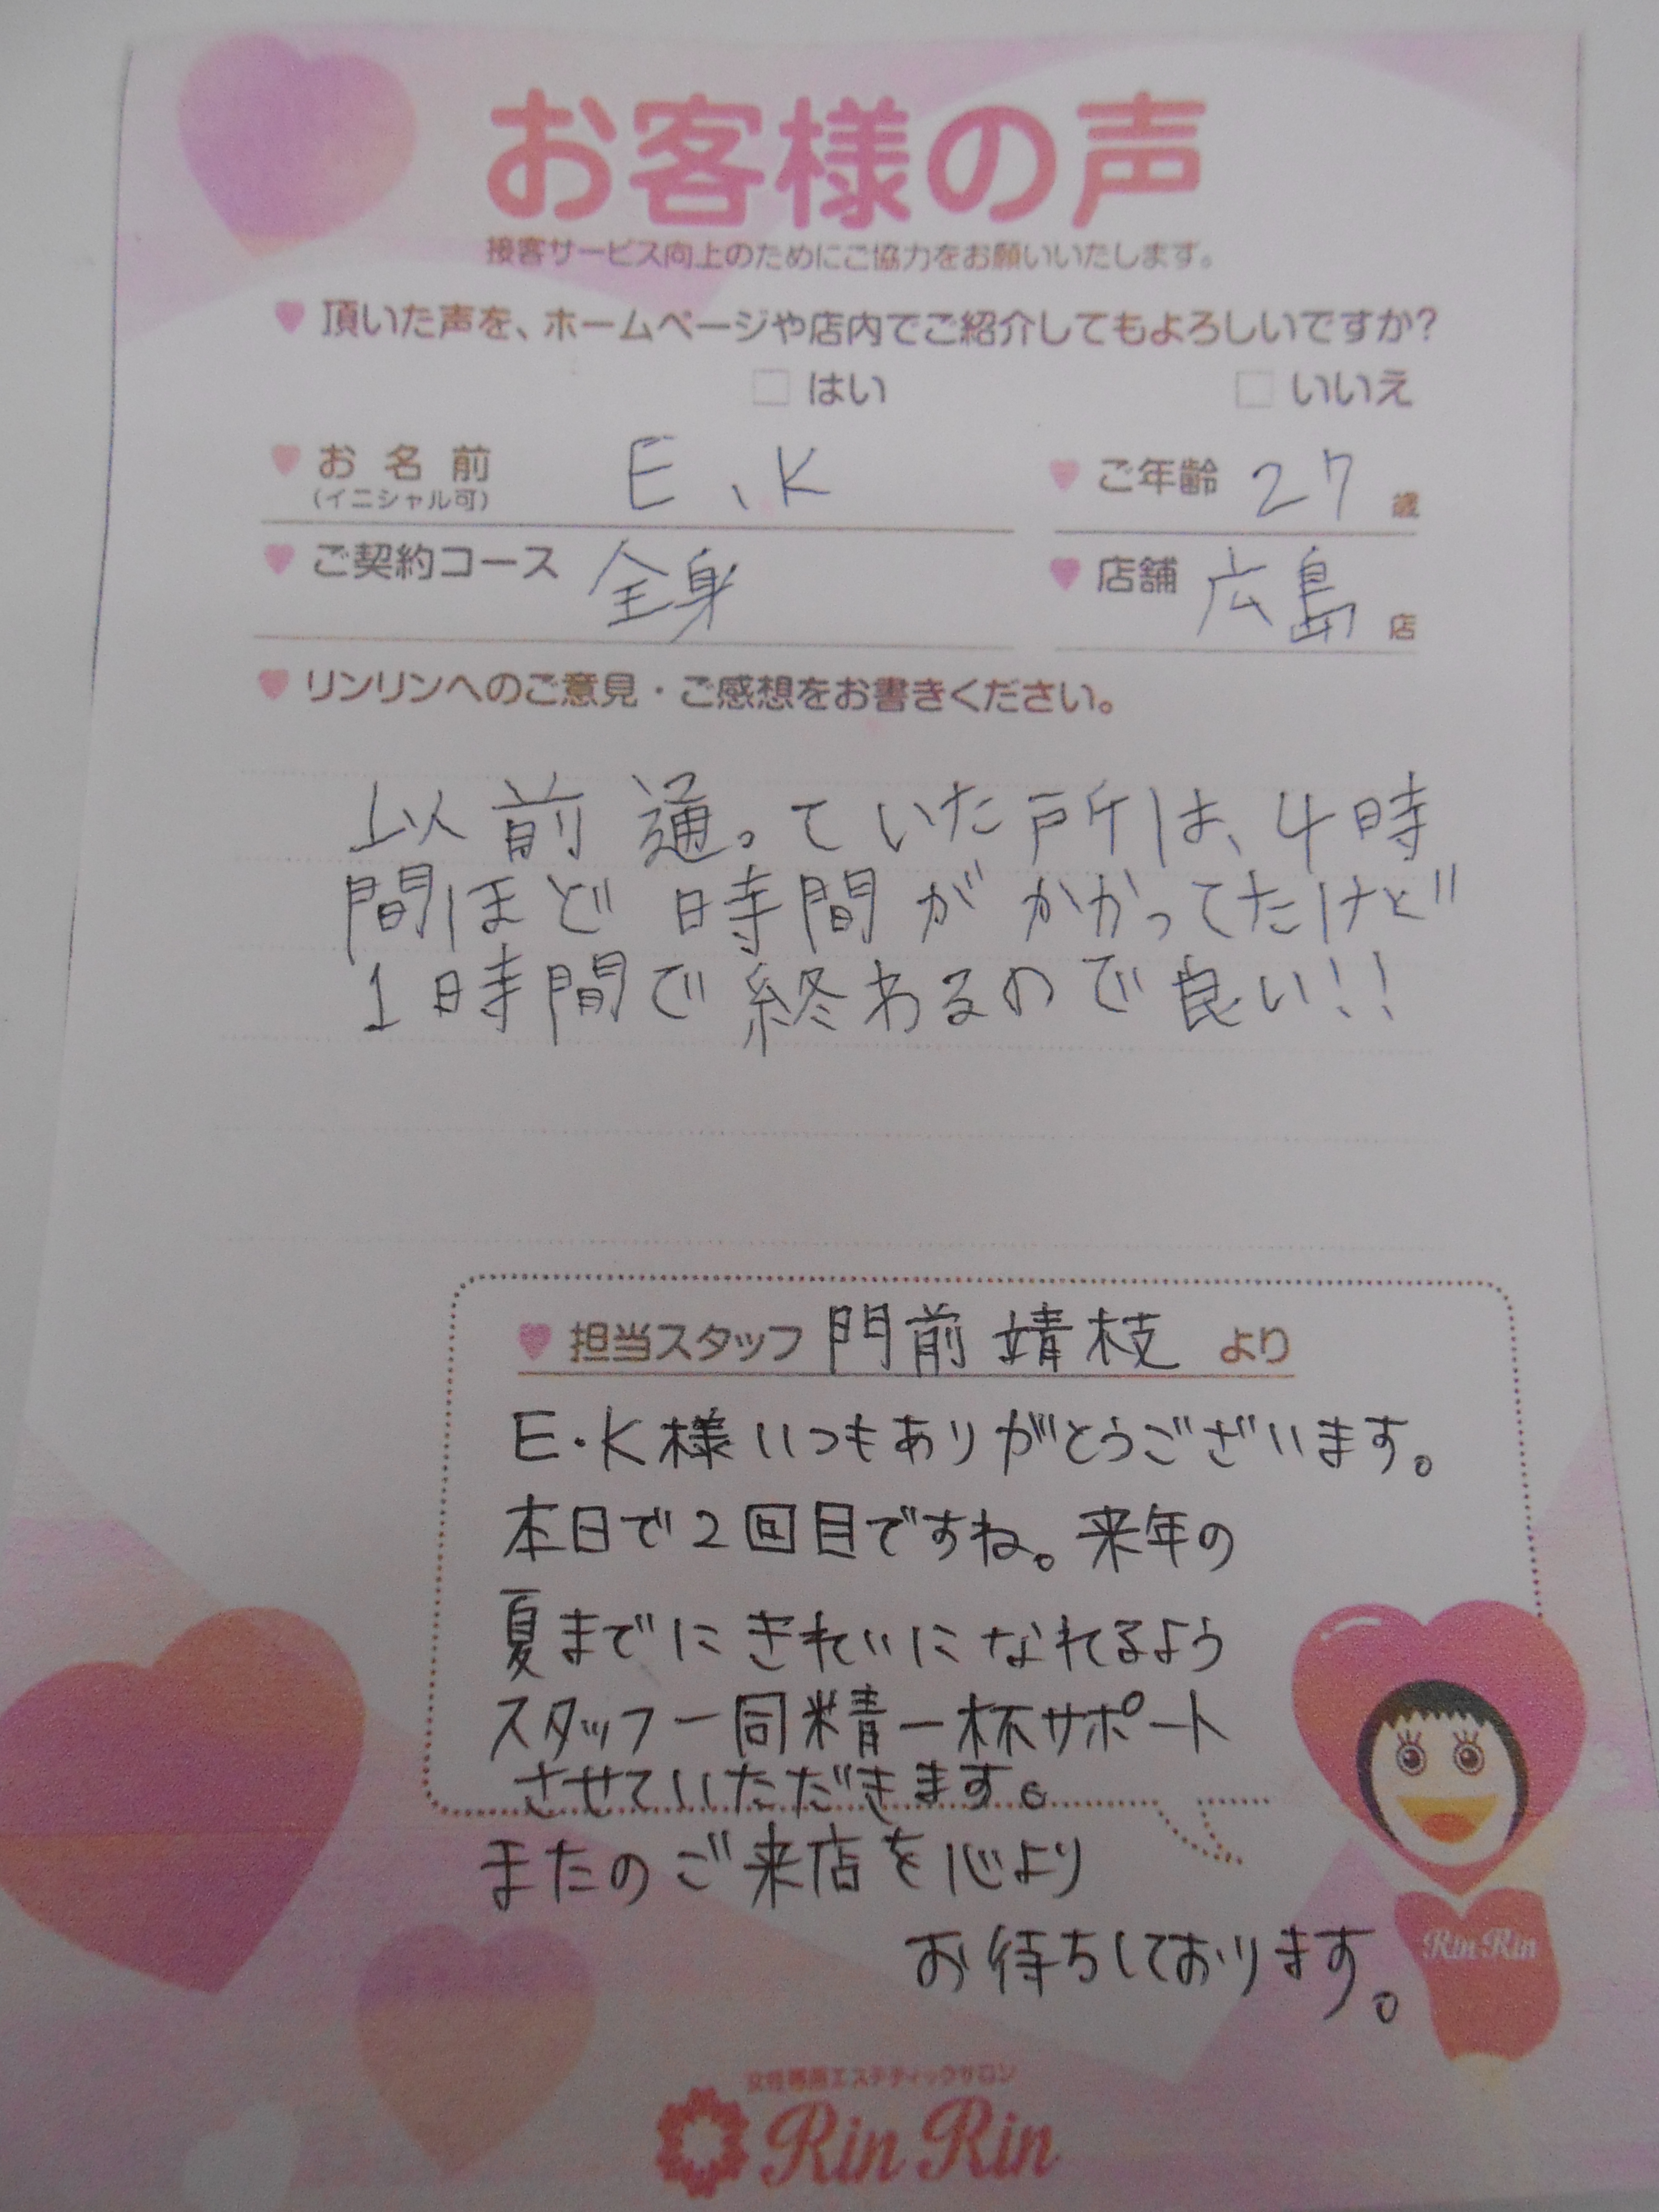 お客様の声
接客サービス向上のためにご協力をお願いいたします。
頂いた声を、ホームページや店内でご紹介してもよろしいですか?
□ はい □ いいえ
お名前 E、K ご年齢 27 歳
(イニシャル可)
ご契約コース 全身 店舗 広島 店
リンリンへのご意見・ご感想をお書きください。
以前通っていた所は、4時
間ほど時間がかかってたけど
1時間で終わるので良い!!
担当スタッフ 門前 靖枝 より
E・K様いつもありがとうございます。
本日で2回目ですね。来年の
夏までにきれいになれるよう
スタッフ一同精一杯サポート
させていただきます。
またのご来店を心より
お待ちしております。
Rin Rin
女性専用エステティックサロン
Rin Rin